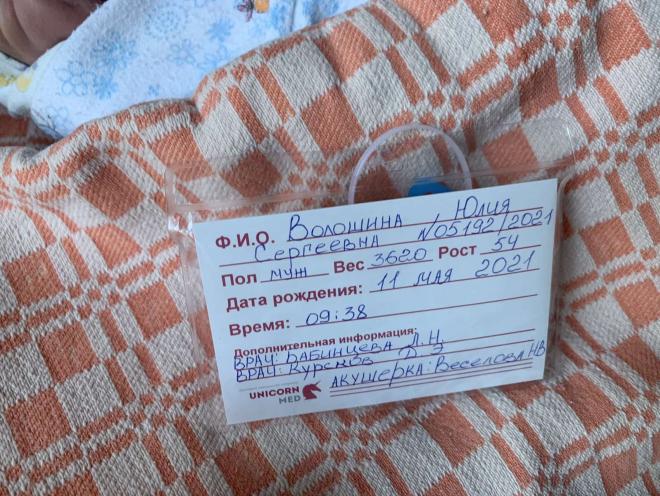 Ф.И.О. Волошина Юлия
Сергеевна №05192/2021
Пол муж Вес 3620 Рост 54
Дата рождения: 11 мая 2021
Время: 09:38
Дополнительная информация:
ВРАЧ: БАБИНЦЕВА Л.Н
ВРАЧ: Курсков Д.Э
АКУШЕРКА: Веселова НВ
UNICORN
MED